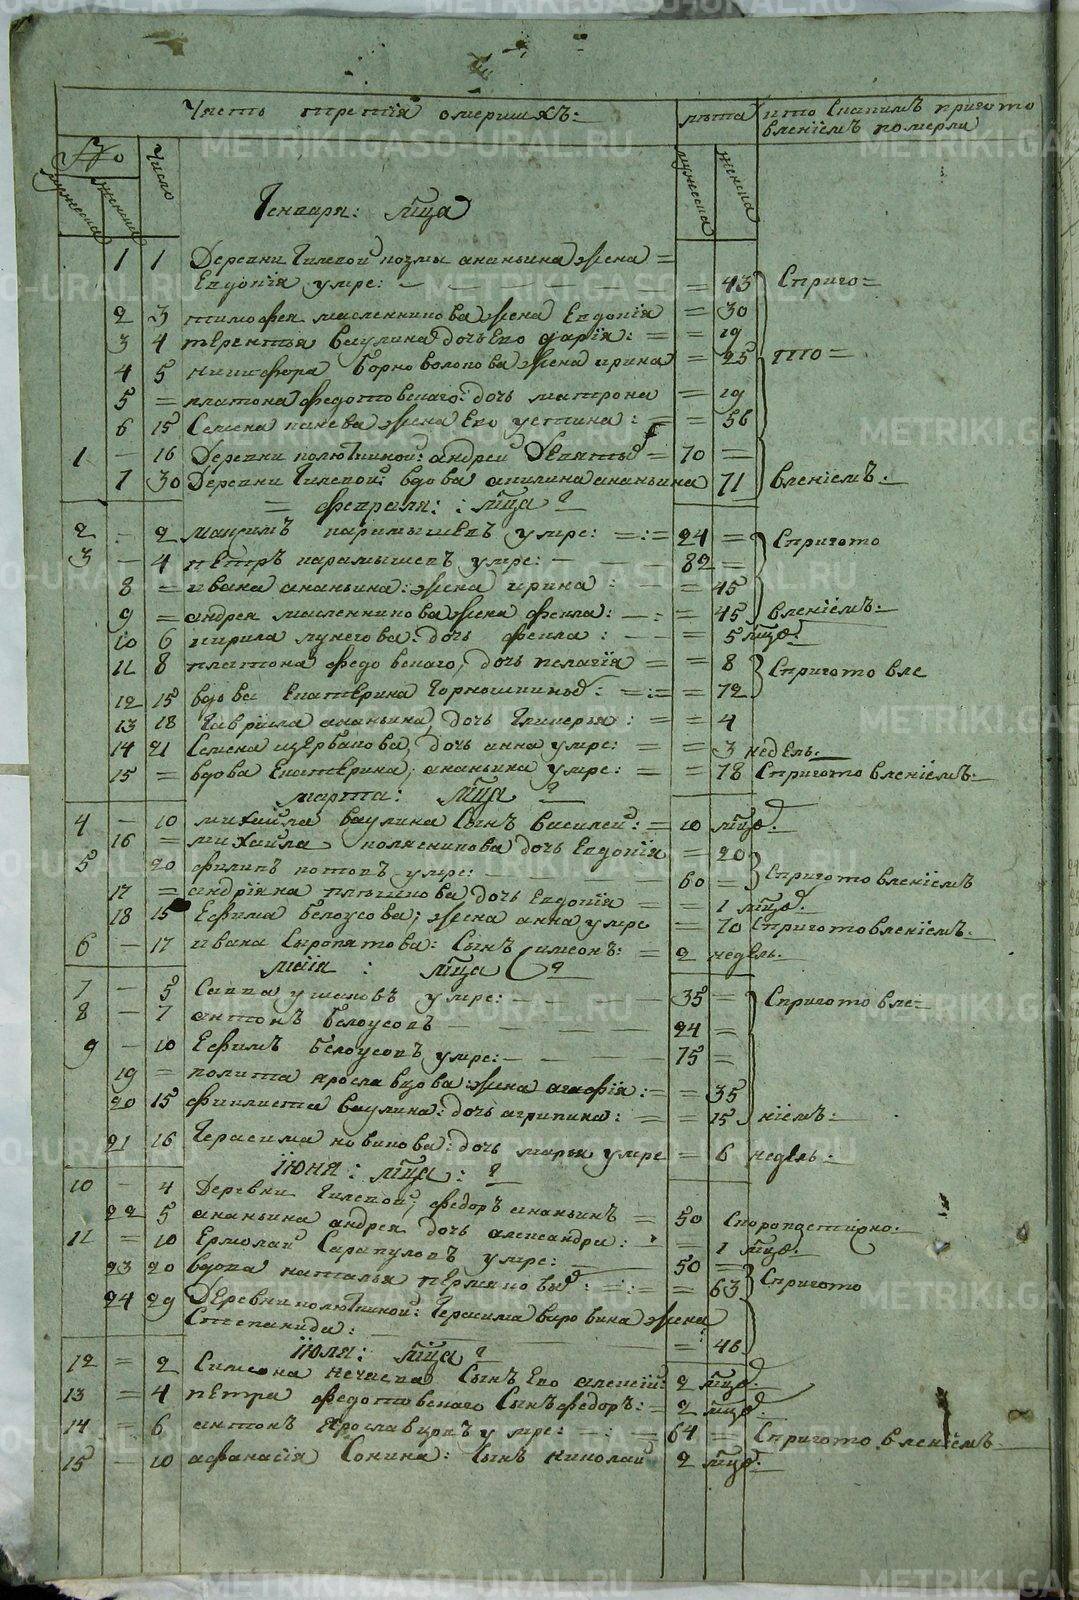 Часть третїя омершихъ:
лѣта
и то Скакимъ пригото
вленїемъ померли
№
мужеска
женска
число
мужеска
женска
Генваря: мца
1 1 Деревни Гилевой козмы ананьина жена =
Евдокїя умре: — = 43 Спригото=
2 3 тимофея масленникова жена Евдокїя = 30
3 4 терентья ваулина дочь Его дарїя: = = 19
4 5 никифора Борноволокова жена ирина = 25 то=
5 = платона федотовскаго: дочь матрона = 19
6 15 Семена панева жена Его устина: = = 56
1 — 16 Деревни полютниной: андрей Девятых = 70 =
7 30 Деревни Гилевой: вдова акилина ананьина 71 вленїемъ:
= февраля: мца
2 — 2 максимъ карамышевъ умре: =:= 24 = Спригото
3 — 4 петръ карамышевъ умре: — — — 82 =
8 = ивана ананьина: жена ирина : = 45
9 = андрея масленникова жена фекла: —: = 45 вленїемъ:
10 6 кирила лунегова: дочь фекла: — — = 5 мцов.
11 8 платона федовскаго, дочь пелагїя = = 8 Спригото вле
12 15 вдова Екатерина Горношкиных: =:= = 72
13 18 Гаврїила ананьина, дочь Гликерья: = = 4
14 21 Семена щербакова, дочь анна умре: = = 3 недель.
15 = вдова Екатерина, ананьина умре: = = 78 Спригото вленїемъ:
марта: мца
4 — 10 михайла ваулина Сынъ василей: = 10 мцов.
16 = михайла поляскинова дочь Евдокїя = 20
5 20 филипъ котовъ умре: — 60 = Спригото вленїемъ
17 = андрїяна плѣшкова дочь Евдокїя = = 1 мцов.
18 15 Ефима белоусова; жена анна умре = 70 Спригото вленїемъ.
6 — 17 ивана Сыропятова: Сынъ Симеонъ: = 2 недель.
маїя : мца
7 — 5 Савва ушаковъ умре: — — — 35 = Спригото вле=
8 — 7 антонъ белоусовъ — — — — 24 =
9 — 10 Ефимъ белоусовъ умре: — — — 75 =
19 = полита ярославцова: жена агафїя: = = 35
20 15 филиста ваулина: дочь агрипина: = = 15 нїемъ:
21 16 Герасима новикова: дочь марья умре = 6 недель:
їюня: мца:
10 — 4 Деревни Гилевой, федоръ ананьинъ = 50 Скоропостижно.
22 5 ананьина андрея дочь александра: = 1 мцов.
11 = 10 Ермолай Сарапуловъ умре: — 50 =
23 20 вдова наталья пермяковых: =:= = 63 Спригото
24 29 Деревни полютниной: Герасима воровина жена
Степанида: — = 46
їюля: мца
12 = 2 Симеона нечаева Сынъ Его алексїй: 2 мцов.
13 = 4 петра федотовскаго Сынъ федоръ: = 2 мцов.
14 = 6 антонъ ярославцевъ умре: —: = 64 = Спригото вленїемъ
15 — 10 афанасїя Сонина: Сынъ николай 2 мцов.